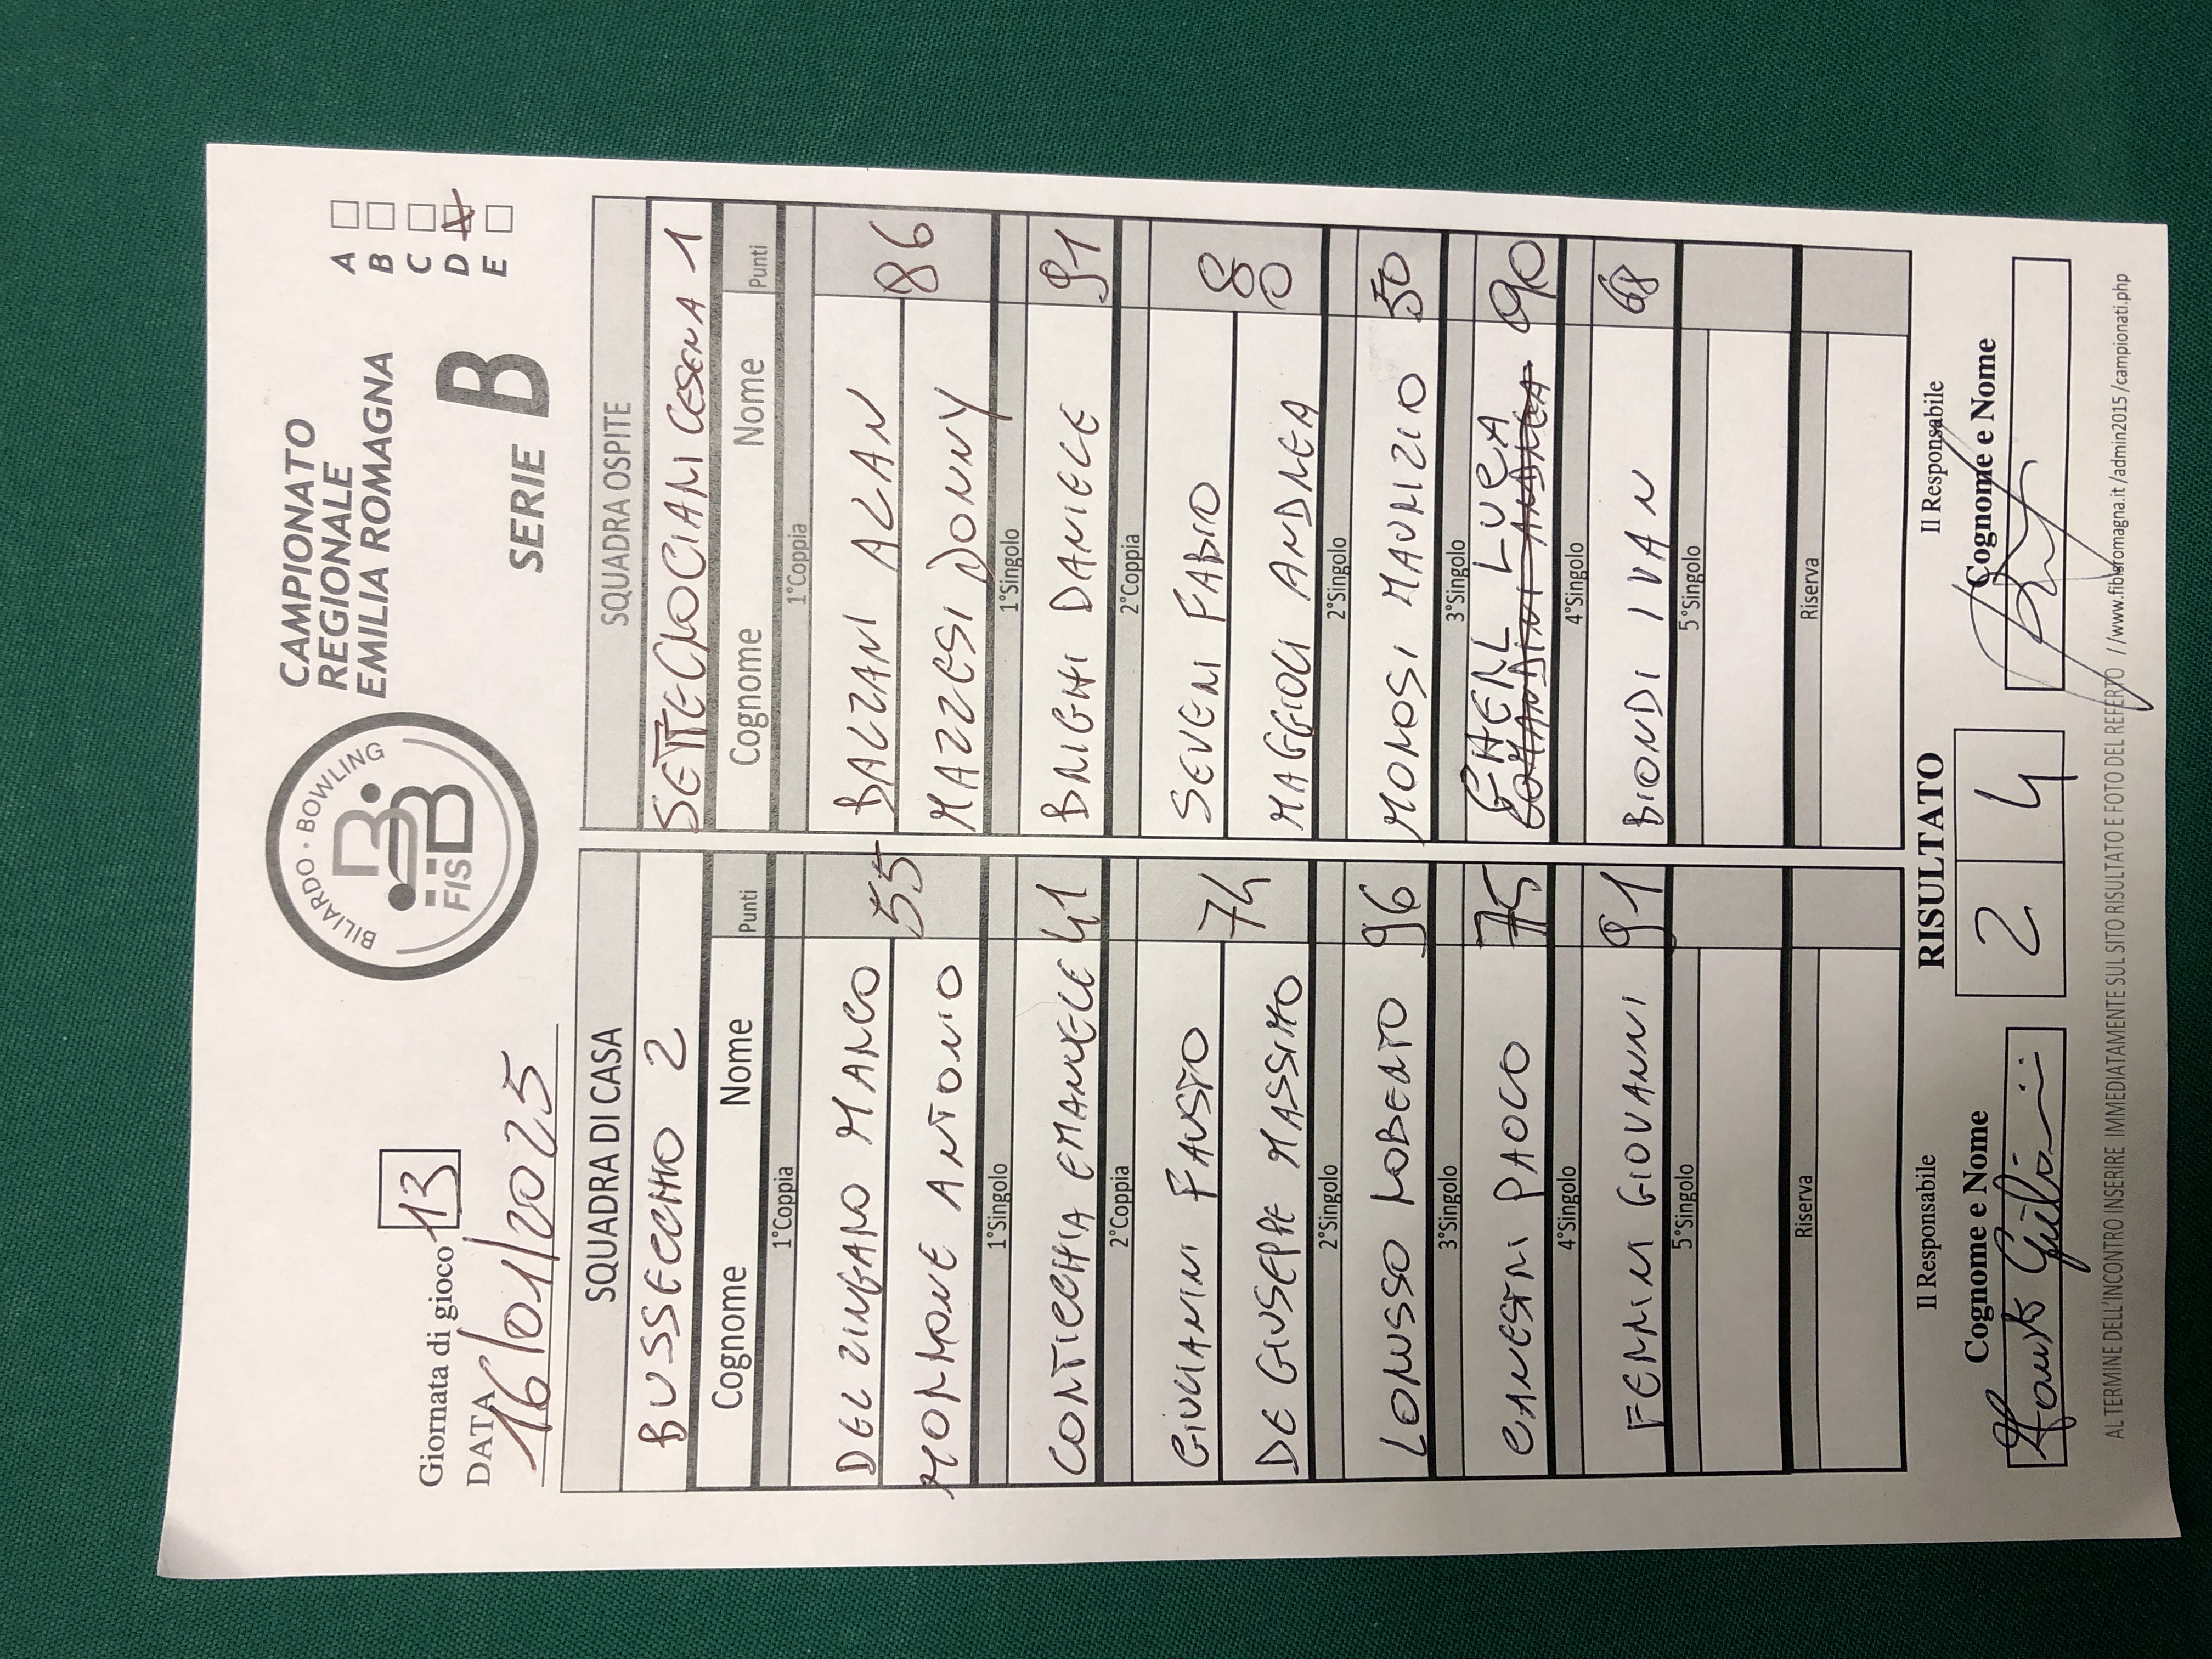 Giornata di gioco 13
DATA 16/01/2025
BILIARDO · BOWLING
FISBB
CAMPIONATO
REGIONALE
EMILIA ROMAGNA
SERIE B
A
B
C
D X
E
SQUADRA DI CASA
BUSSECCHIO 2
Cognome Nome Punti
1°Coppia
DEL ZINGARO MARCO
MORMONE ANTONIO 55
1°Singolo
CONTICCHIA EMANUELE 41
2°Coppia
GIULIANINI FAUSTO
DE GIUSEPPE MASSIMO 74
2°Singolo
LORUSSO ROBERTO 96
3°Singolo
CANESTRI PAOLO 75
4°Singolo
FERRINI GIOVANNI 91
5°Singolo
Riserva
SQUADRA OSPITE
SETTECROCIARI CESENA 1
Cognome Nome Punti
1°Coppia
BALZANI ALAN
MAZZESI DONNY 86
1°Singolo
BRIGHI DANIELE 91
2°Coppia
SEVERI FABIO
MAGGIOLI ANDREA 80
2°Singolo
MOROSI MAURIZIO 50
3°Singolo
GHERL LUCA 90
4°Singolo
BIONDI IVAN 68
5°Singolo
Riserva
Il Responsabile
Cognome e Nome
RISULTATO
2 4
Il Responsabile
Cognome e Nome
AL TERMINE DELL'INCONTRO INSERIRE IMMEDIATAMENTE SUL SITO RISULTATO E FOTO DEL REFERTO //www.fibisromagna.it/admin2015/campionati.php